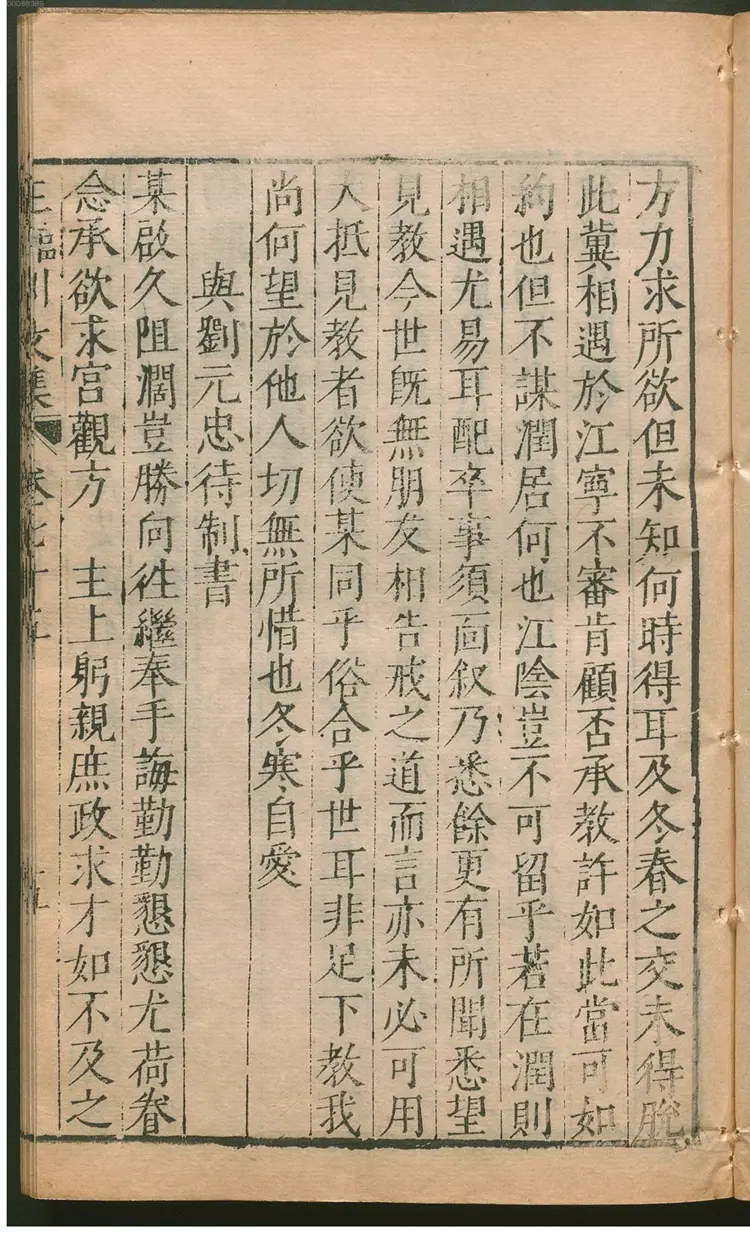 方力求所欲但未知何時得耳及冬春之交未得脫
此冀相遇於江寧不審肯顧否承教許如此當可如
約也但不謀潤居何也江陰豈不可留乎若在潤則
相遇尤易耳配卒事須面叙乃悉餘更有所聞悉望
見教今世旣無朋友相告戒之道而言亦未必可用
大抵見教者欲使某同乎俗合乎世耳非足下教我
尚何望於他人切無所惜也冬寒自愛
與劉元忠待制書
某啟久阻濶豈勝向徃繼奉手誨勤勤懇懇尤荷眷
念承欲求宮觀方 主上躬親庶政求才如不及之
王臨川文集 卷七十五 十五
00066389